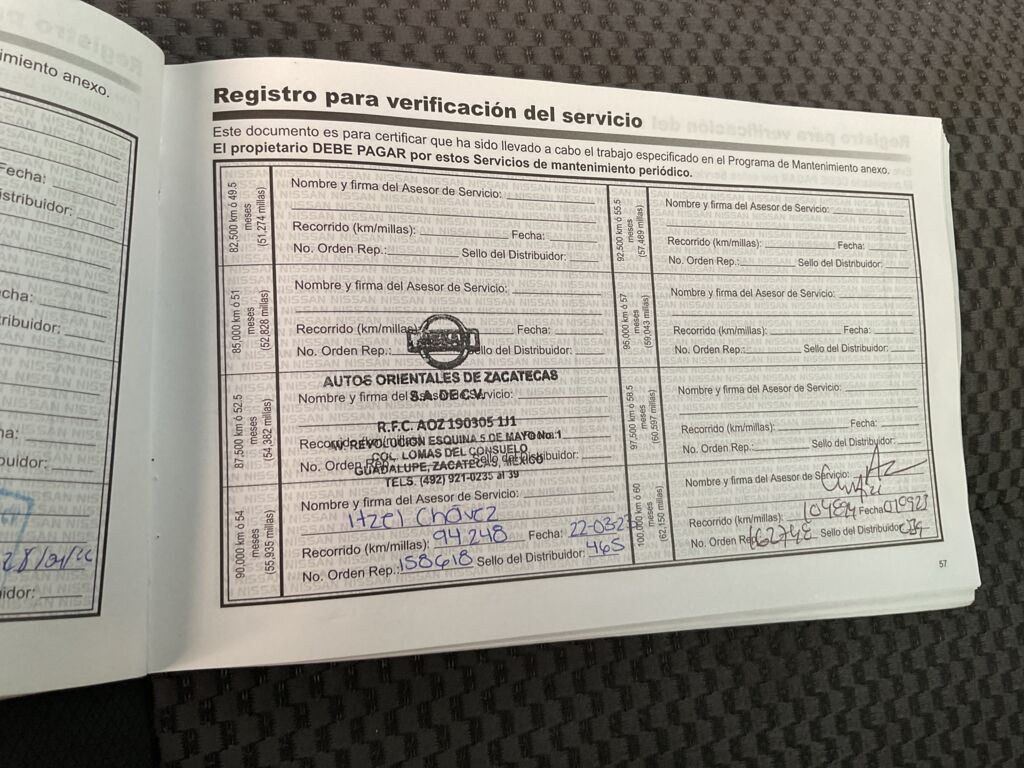 imiento anexo.
Fecha:
istribuidor:
cha:
tribuidor:
na:
buidor:
idor:
Registro para verificación del servicio
Este documento es para certificar que ha sido llevado a cabo el trabajo especificado en el Programa de Mantenimiento anexo.
El propietario DEBE PAGAR por estos Servicios de mantenimiento periódico.
82,500 km ó 49.5
meses
(51,274 millas)
Nombre y firma del Asesor de Servicio:
Recorrido (km/millas): Fecha:
No. Orden Rep.: Sello del Distribuidor:
85,000 km ó 51
meses
(52,828 millas)
Nombre y firma del Asesor de Servicio:
Recorrido (km/millas): Fecha:
No. Orden Rep.: Sello del Distribuidor:
87,500 km ó 52.5
meses
(54,382 millas)
AUTOS ORIENTALES DE ZACATECAS
S.A. DE C.V.
R.F.C. AOZ 190305 1J1
AV. REVOLUCION ESQUINA 5 DE MAYO No. 1
COL. LOMAS DEL CONSUELO
GUADALUPE, ZACATECAS, MEXICO
TELS. (492) 921-0235 al 39
Nombre y firma del Asesor de Servicio:
Recorrido (km/millas):
No. Orden Rep.: Sello del Distribuidor:
90,000 km ó 54
meses
(55,935 millas)
Nombre y firma del Asesor de Servicio:
Itzel Chávez
Recorrido (km/millas): 94 248 Fecha: 22-03-2
No. Orden Rep.: 158618 Sello del Distribuidor: 465
92,500 km ó 55.5
meses
(57,489 millas)
Nombre y firma del Asesor de Servicio:
Recorrido (km/millas): Fecha:
No. Orden Rep.: Sello del Distribuidor:
95,000 km ó 57
meses
(59,043 millas)
Nombre y firma del Asesor de Servicio:
Recorrido (km/millas): Fecha:
No. Orden Rep.: Sello del Distribuidor:
97,500 km ó 58.5
meses
(60,597 millas)
Nombre y firma del Asesor de Servicio:
Recorrido (km/millas): Fecha:
No. Orden Rep.: Sello del Distribuidor:
100,000 km ó 60
meses
(62,150 millas)
Nombre y firma del Asesor de Servicio:
Recorrido (km/millas): Fecha: 010923
No. Orden Rep. Sello del Distribuidor:
57